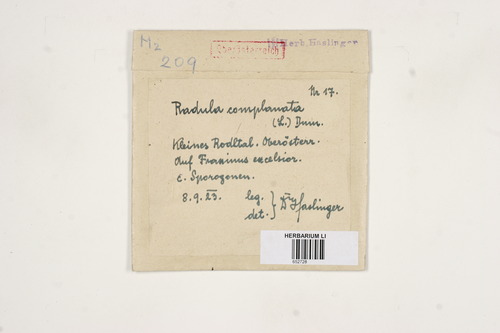 M2
209
Oberösterreich
Herb. Haslinger
Nr 17.
Radula complanata
(L.) Dum.
Kleines Rodltal. Oberösterr.
Auf Fraxinus excelsior.
c. Sporogonen.
8. 9. 23. leg. } Dr Haslinger
det.
HERBARIUM LI